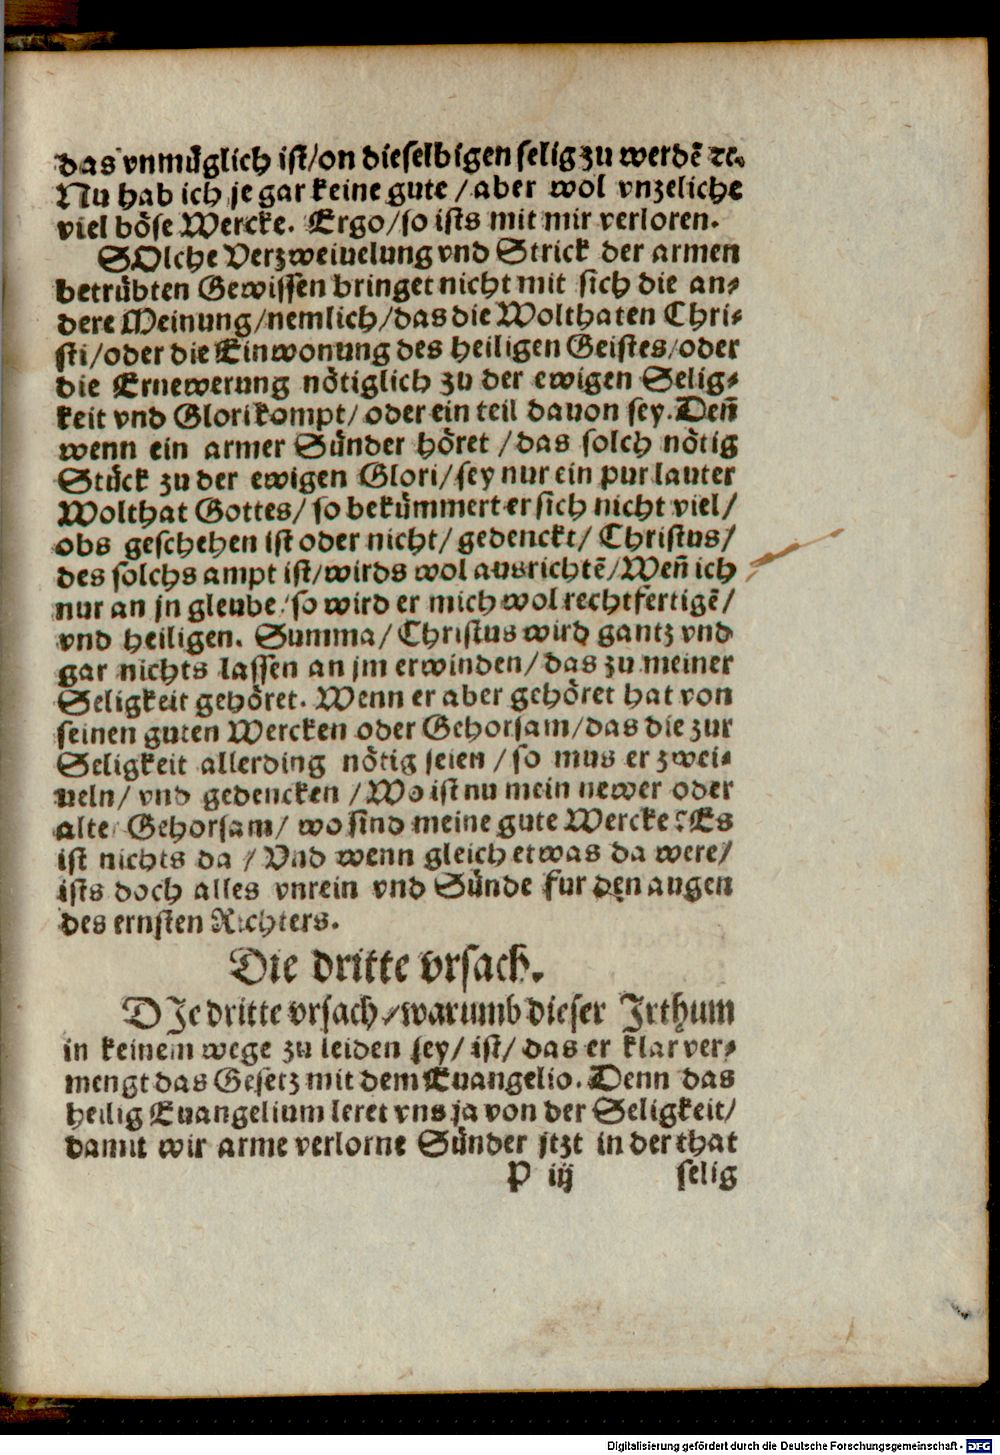 das vnmüglich ist/on dieselbigen selig zu werdẽ ꝛc.
Nu hab ich je gar keine gute / aber wol vnzeliche
viel böse Wercke. Ergo/so ists mit mir verloren.
SOlche Verzweiuelung vnd Strick der armen
betrübten Gewissen bringet nicht mit sich die an⸗
dere Meinung/nemlich/das die Wolthaten Chri⸗
sti/oder die Einwonung des heiligen Geistes/oder
die Ernewerung nötiglich zu der ewigen Selig⸗
keit vnd Glori kompt/ oder ein teil dauon sey. Deñ
wenn ein armer Sünder höret /das solch nötig
Stück zu der ewigen Glori/sey nur ein pur lauter
Wolthat Gottes/ so bekümmert er sich nicht viel/
obs geschehen ist oder nicht/ gedenckt/ Christus/
des solchs ampt ist/wirds wol ausrichtẽ/Weñ ich
nur an jn gleube/so wird er mich wol rechtfertigẽ/
vnd heiligen. Summa/Christus wird gantz vnd
gar nichts lassen an jm erwinden/das zu meiner
Seligkeit gehöret. Wenn er aber gehöret hat von
seinen guten Wercken oder Gehorsam/das die zur
Seligkeit allerding nötig seien /so mus er zwei⸗
ueln/ vnd gedencken /Wo ist nu mein newer oder
alte Gehorsam/ wo sind meine gute Wercke? Es
ist nichts da / Vnd wenn gleich etwas da were/
ists doch alles vnrein vnd Sünde fur den augen
des ernsten Richters.
Die dritte vrsach.
DJe dritte vrsach/warumb dieser Jrthum
in keinem wege zu leiden sey/ ist/ das er klar ver⸗
mengt das Gesetz mit dem Euangelio. Denn das
heilig Euangelium leret vns ja von der Seligkeit/
damit wir arme verlorne Sünder jtzt in der that
P iij selig
Digitalisierung gefördert durch die Deutsche Forschungsgemeinschaft - DFG